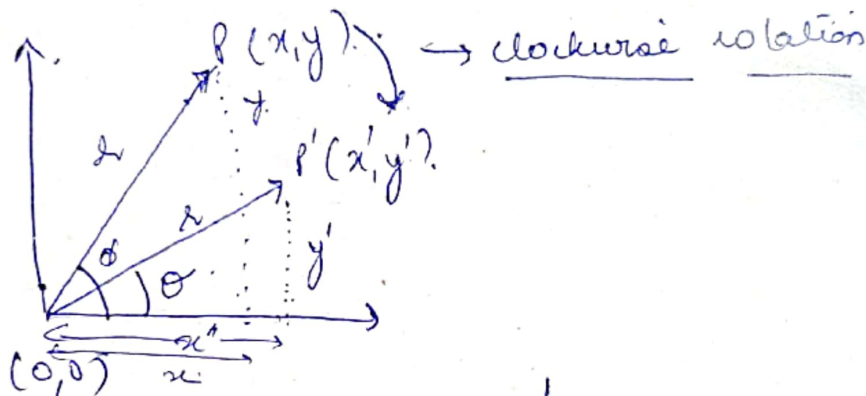 P (x,y). → clockwise rotation
y
r
P' (x', y').
r
φ
θ
y'
x'
x
(0,0)